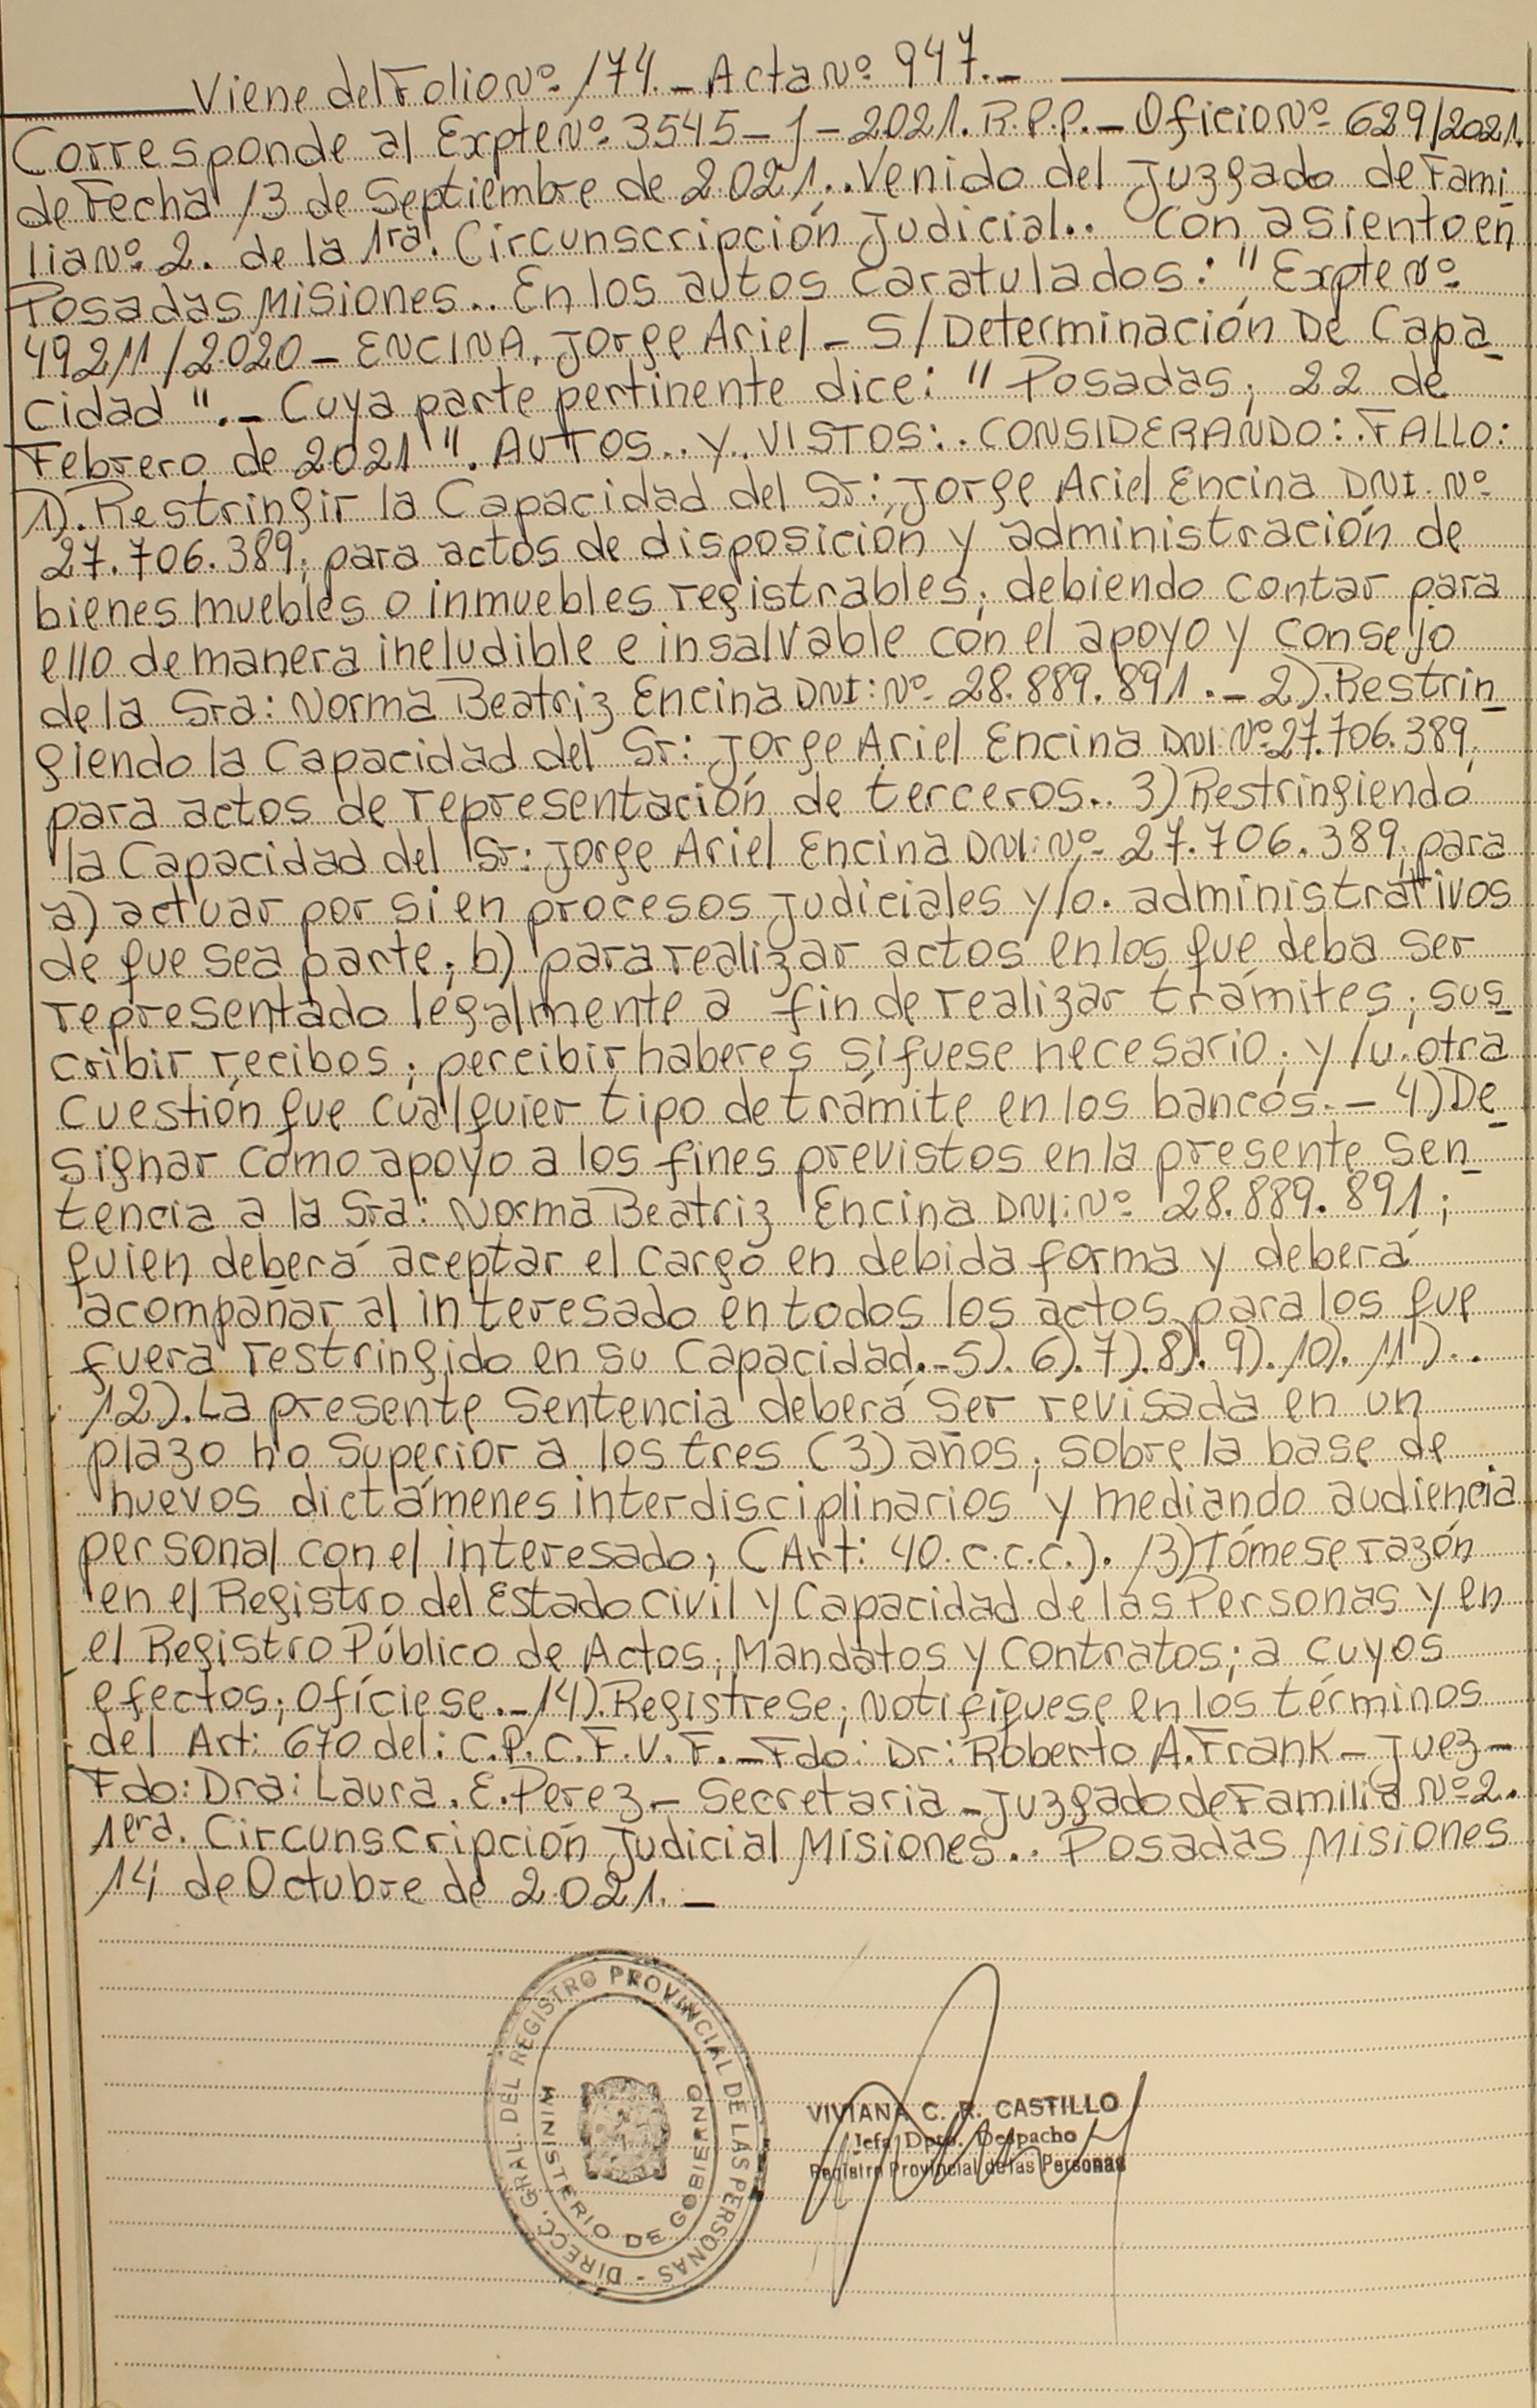 Viene del Folio Nº 174.- Acta Nº 947.-
Corresponde al Expte Nº 3545-J-2021. R.P.P.- Oficio Nº 629/2021.
de Fecha 13 de Septiembre de 2.021.. Venido del Juzgado de Fami
lia Nº 2. de la 1ra. Circunscripción Judicial.. Con asiento en
Posadas Misiones.. En los autos Caratulados: "Expte Nº
49211/2020- ENCINA, Jorge Ariel - S/Determinación De Capa_
cidad".- Cuya parte pertinente dice: "Posadas, 22 de
Febrero de 2021". AUTOS.. Y.. VISTOS:. CONSIDERANDO:. FALLO:
1). Restringir la Capacidad del Sr: Jorge Ariel Encina DNI. Nº
27.706.389; para actos de disposición y administración de
bienes muebles o inmuebles registrables; debiendo contar para
ello de manera ineludible e insalvable con el apoyo y consejo
de la Sra: Norma Beatriz Encina DNI: Nº 28.889.891.- 2). Restrin_
giendo la Capacidad del Sr: Jorge Ariel Encina DNI: Nº 27.706.389;
para actos de representación de terceros.. 3) Restringiendo
la Capacidad del Sr: Jorge Ariel Encina DNI: Nº 27.706.389; para
a) actuar por si en procesos judiciales y/o. administrativos
de que sea parte; b) para realizar actos en los que deba ser
representado legalmente a fin de realizar trámites; sus_
cribir recibos; percibir haberes si fuese necesario; y/u. otra
Cuestión que cualquier tipo de trámite en los bancos.- 4) De_
signar como apoyo a los fines previstos en la presente Sen_
tencia a la Sra: Norma Beatriz Encina DNI: Nº 28.889.891;
quien deberá aceptar el cargo en debida forma y deberá
acompañar al interesado en todos los actos para los que
fuera restringido en su Capacidad.- 5). 6). 7). 8). 9). 10). 11)..
12). La presente Sentencia deberá ser revisada en un
plazo no superior a los tres (3) años; sobre la base de
nuevos dictámenes interdisciplinarios y mediando audiencia
personal con el interesado; (Art: 40. c.c.c.). 13) Tómese razón
en el Registro del Estado Civil y Capacidad de las Personas y en
el Registro Público de Actos; Mandatos y Contratos; a cuyos
efectos; ofíciese.- 14). Regístrese; Notifíquese en los términos
del Art: 670 del: C.P.C.F.V.F.- Fdo: Dr: Roberto A. Frank - Juez -
Fdo: Dra: Laura. E. Perez - Secretaria - Juzgado de Familia Nº 2.
1era. Circunscripción Judicial Misiones.. Posadas Misiones
14 de Octubre de 2.021.-
DIRECC. GRAL. DEL REGISTRO PROVINCIAL DE LAS PERSONAS -
MINISTERIO DE GOBIERNO
VIVIANA C. R. CASTILLO
Jefa Dpto. Despacho
Registro Provincial de las Personas